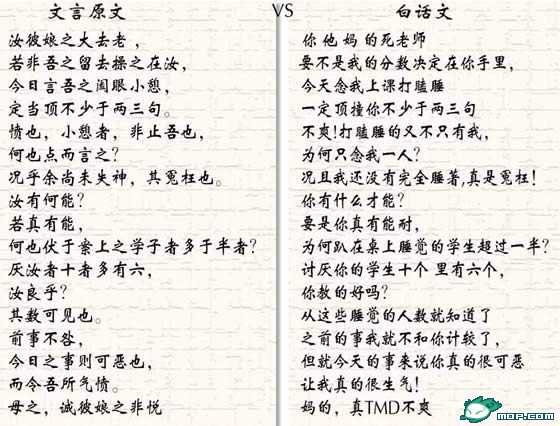 文言原文 VS 白话文
汝彼娘之大去老， 你他妈的死老师
若非吾之留去操之在汝， 要不是我的分数决定在你手里，
今日言吾之阖眼小憩， 今天念我上课打瞌睡
定当顶不少于两三句。 一定顶撞你不少于两三句
愤也，小憩者，非止吾也， 不爽!打瞌睡的又不只有我，
何也点而言之? 为何只念我一人?
况乎余尚未失神，其冤枉也。 况且我还没有完全睡著,真是冤枉!
汝有何能? 你有什么才能?
若真有能， 要是你真有能耐，
何也伏于案上之学子者多于半者? 为何趴在桌上睡觉的学生超过一半?
厌汝者十者多有六， 讨厌你的学生十个 里有六个，
汝良乎? 你教的好吗?
其数可见也。 从这些睡觉的人数就知道了
前事不咎， 之前的事我就不和你计较了，
今日之事则可恶也， 但就今天的事来说你真的很可恶
而令吾所气愤。 让我真的很生气!
母之，诚彼娘之非悦 妈的，真TMD不爽
MOP.COM